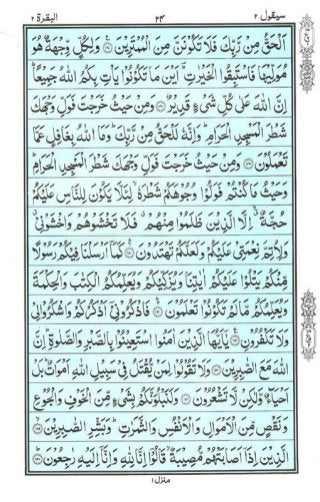 سيقول ٢ ٢٤ البقرة ٢
اَلْحَقُّ مِنْ رَّبِّكَ فَلَا تَكُوْنَنَّ مِنَ الْمُمْتَرِيْنَ وَلِكُلٍّ وِّجْهَةٌ هُوَ
مُوَلِّيْهَا فَاسْتَبِقُوا الْخَيْرٰتِ اَيْنَ مَا تَكُوْنُوْا يَاْتِ بِكُمُ اللّٰهُ جَمِيْعًا
اِنَّ اللّٰهَ عَلٰى كُلِّ شَىْءٍ قَدِيْرٌ وَمِنْ حَيْثُ خَرَجْتَ فَوَلِّ وَجْهَكَ
شَطْرَ الْمَسْجِدِ الْحَرَامِ وَاِنَّهٗ لَلْحَقُّ مِنْ رَّبِّكَ وَمَا اللّٰهُ بِغَافِلٍ عَمَّا
تَعْمَلُوْنَ وَمِنْ حَيْثُ خَرَجْتَ فَوَلِّ وَجْهَكَ شَطْرَ الْمَسْجِدِ الْحَرَامِ
وَحَيْثُ مَا كُنْتُمْ فَوَلُّوْا وُجُوْهَكُمْ شَطْرَهٗ لِئَلَّا يَكُوْنَ لِلنَّاسِ عَلَيْكُمْ
حُجَّةٌ اِلَّا الَّذِيْنَ ظَلَمُوْا مِنْهُمْ فَلَا تَخْشَوْهُمْ وَاخْشَوْنِىْ
وَلِاُتِمَّ نِعْمَتِىْ عَلَيْكُمْ وَلَعَلَّكُمْ تَهْتَدُوْنَ كَمَا اَرْسَلْنَا فِيْكُمْ رَسُوْلًا
مِّنْكُمْ يَتْلُوْا عَلَيْكُمْ اٰيٰتِنَا وَيُزَكِّيْكُمْ وَيُعَلِّمُكُمُ الْكِتٰبَ وَالْحِكْمَةَ
وَيُعَلِّمُكُمْ مَّا لَمْ تَكُوْنُوْا تَعْلَمُوْنَ فَاذْكُرُوْنِىْ اَذْكُرْكُمْ وَاشْكُرُوْا لِىْ
وَلَا تَكْفُرُوْنِ يٰاَيُّهَا الَّذِيْنَ اٰمَنُوا اسْتَعِيْنُوْا بِالصَّبْرِ وَالصَّلٰوةِ اِنَّ
اللّٰهَ مَعَ الصّٰبِرِيْنَ وَلَا تَقُوْلُوْا لِمَنْ يُّقْتَلُ فِىْ سَبِيْلِ اللّٰهِ اَمْوَاتٌ بَلْ
اَحْيَاءٌ وَّلٰكِنْ لَّا تَشْعُرُوْنَ وَلَنَبْلُوَنَّكُمْ بِشَىْءٍ مِّنَ الْخَوْفِ وَالْجُوْعِ
وَنَقْصٍ مِّنَ الْاَمْوَالِ وَالْاَنْفُسِ وَالثَّمَرٰتِ وَبَشِّرِ الصّٰبِرِيْنَ
الَّذِيْنَ اِذَا اَصَابَتْهُمْ مُّصِيْبَةٌ قَالُوْا اِنَّا لِلّٰهِ وَاِنَّا اِلَيْهِ رٰجِعُوْنَ
منزل ١